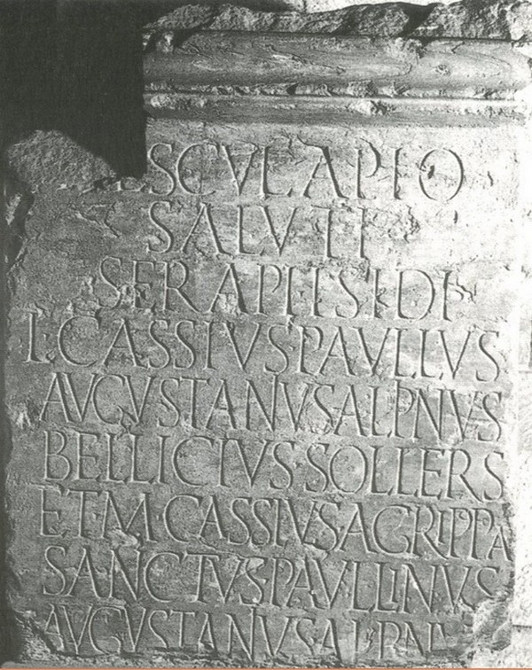 ESCVLAPIO
SALVTI
SERAPI ISIDI
L·CASSIVS·PAVLLVS
AVGVSTANVS ALPINVS
BELLICIVS SOLLERS
ET M·CASSIVS AGRIPPA
SANCTVS·PAVLLINVS
AVGVSTANVS